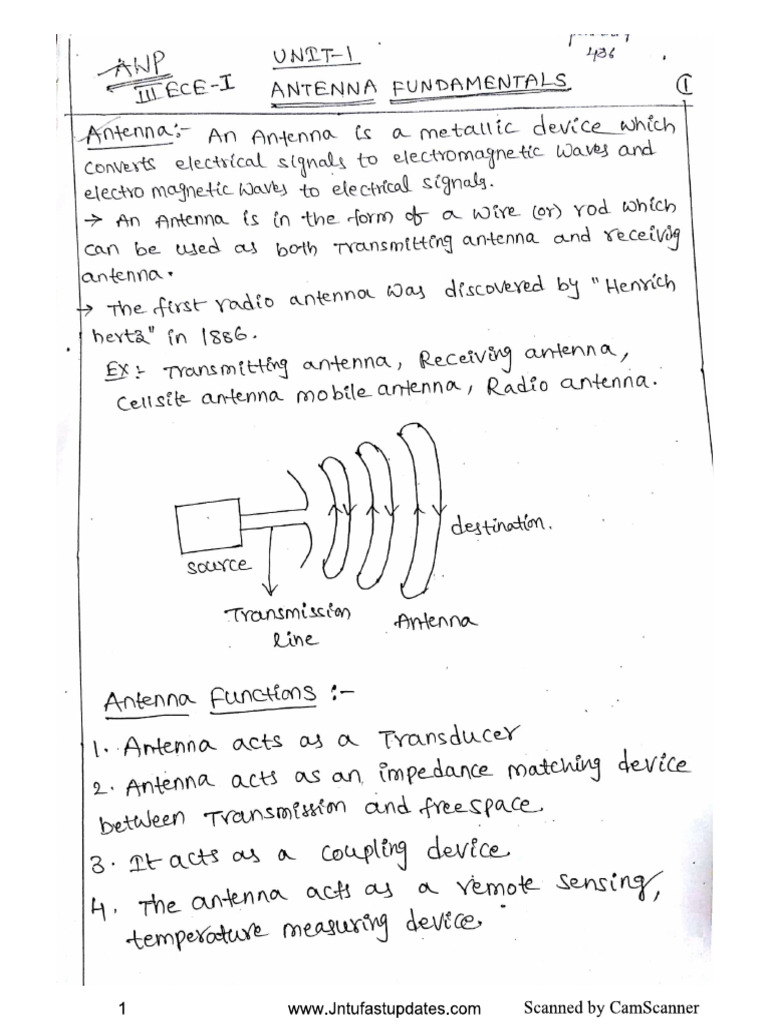 AWP
UNIT-1
436
III ECE-I
ANTENNA FUNDAMENTALS
1
Antenna:- An Antenna is a metallic device which
converts electrical signals to electromagnetic waves and
electro magnetic waves to electrical signals.
→ An Antenna is in the form of a wire (or) rod which
can be used as both transmitting antenna and receivig
antenna.
→ The first radio antenna was discovered by "Henrich
hertz" in 1886.
Ex:- Transmitting antenna, Receiving antenna,
Cellsite antenna mobile antenna, Radio antenna.
source
destination.
Transmission
line
Antenna
Antenna Functions :-
1. Antenna acts as a Transducer
2. Antenna acts as an impedance matching device
between Transmission and freespace.
3. It acts as a coupling device
4. The antenna acts as a remote sensing,
temperature measuring device.
1
www.Jntufastupdates.com
Scanned by CamScanner